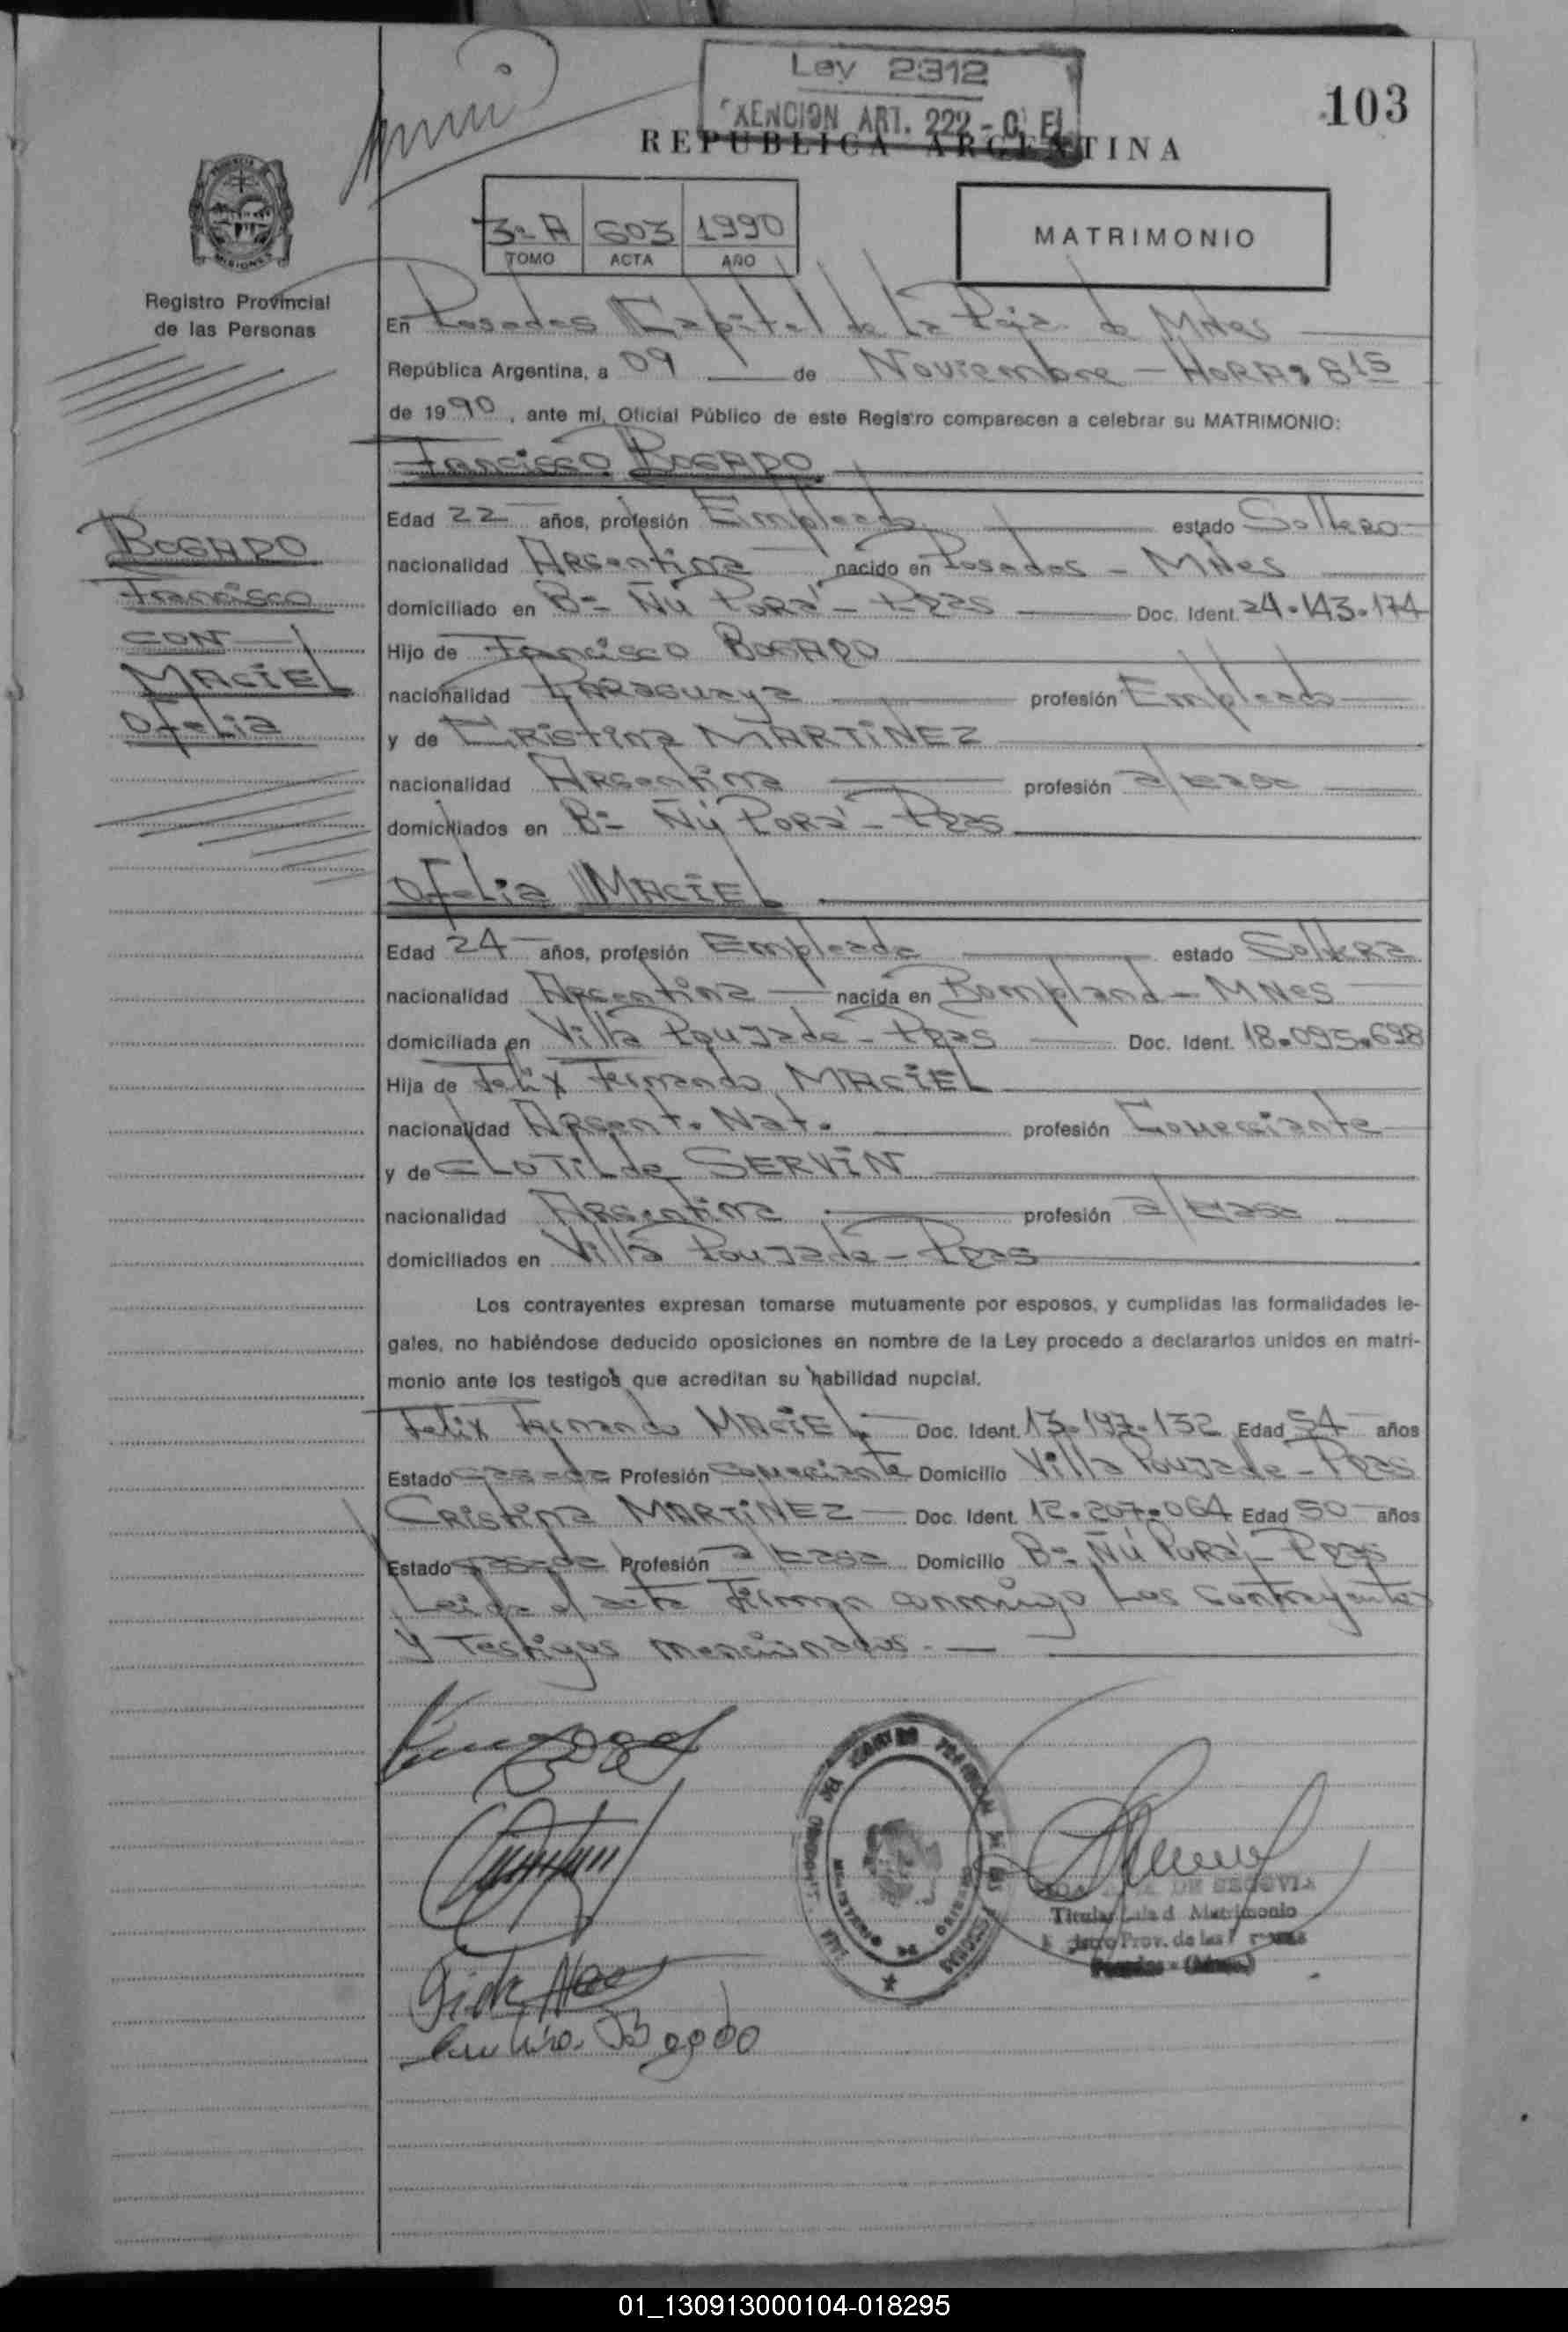 Ley 2312
EXENCION ART. 222 - C. F.
103
REPUBLICA ARGENTINA
3º A 603 1990
TOMO ACTA AÑO
MATRIMONIO
MISIONES
Registro Provincial
de las Personas
En Posadas Capital de la Pcia. de MNes
República Argentina, a 09 de Noviembre - HORA: 8 15
de 1990, ante mí, Oficial Público de este Registro comparecen a celebrar su MATRIMONIO:
Francisco BOGADO
Edad 22 años, profesión Empleado estado Soltero
nacionalidad Argentina nacido en Posadas - MNes
domiciliado en Bº Ñú Porá - Pdas Doc. Ident. 24.143.174
Hijo de Francisco BOGADO
nacionalidad Paraguaya profesión Empleado
y de Cristina MARTINEZ
nacionalidad Argentina profesión a/casa
domiciliados en Bº Ñú Porá - Pdas
BOGADO
Francisco
CON
MACIEL
Ofelia
Ofelia MACIEL
Edad 24 años, profesión Empleada estado Soltera
nacionalidad Argentina nacida en Bompland - MNes
domiciliada en Villa Poujade - Pdas Doc. Ident. 18.095.698
Hija de Felix Fernando MACIEL
nacionalidad Argent. Nat. profesión Comerciante
y de CLOTILde SERVIN
nacionalidad Argentina profesión a/casa
domiciliados en Villa Poujade - Pdas
Los contrayentes expresan tomarse mutuamente por esposos, y cumplidas las formalidades le-
gales, no habiéndose deducido oposiciones en nombre de la Ley procedo a declararlos unidos en matri-
monio ante los testigos que acreditan su habilidad nupcial.
Felix Fernando MACIEL Doc. Ident. 13.197.132 Edad 54 años
Estado casado Profesión comerciante Domicilio Villa Poujade - Pdas
Cristina MARTINEZ Doc. Ident. 12.207.064 Edad 50 años
Estado casada Profesión a/casa Domicilio Bº Ñú Porá - Pdas
Leida el acta Firman conmigo Los contrayentes
y Testigos mencionados.
DE SEGOVIA
Titular Matrimonio
Prov. de las
Posadas
Bogado
01_130913000104-018295